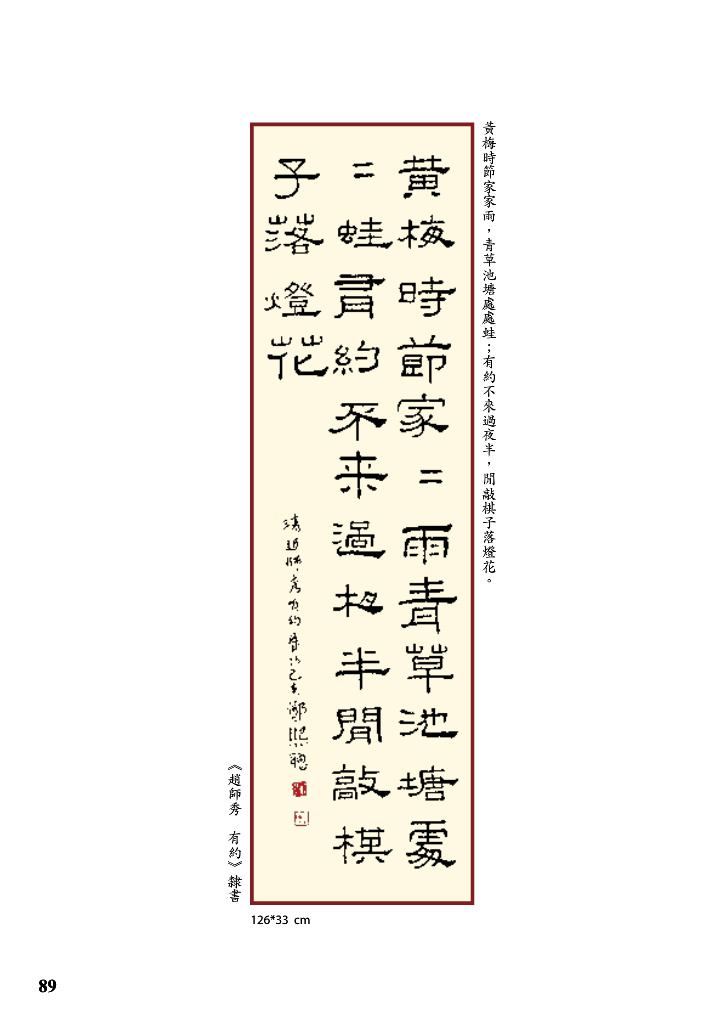 黃梅時節家家雨，青草池塘處處蛙；有約不來過夜半，閒敲棋子落燈花。
黃梅時節家〻雨青草池塘處
〻蛙有約不来過夜半閒敲棋
子落燈花
鄭熙聰
《趙師秀 有約》隸書
126*33 cm
89